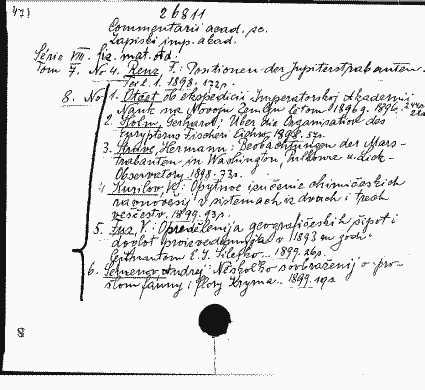 471
26811
Commentarii acad. sc.
Zapiski imp. akad.
Série VIII. fiz. mat. otd.
Tom 7. No 4. Renz, F.: Positionen der Jupiterstrabanten.
Teil 1. 1898. 172p.
8. No 1. Otčet ob ekspedicii Imperatorskoj Akademii
Nauk na Novuju Zemlju lětom 1896 g. 1896. 244p.
2. Holm, Gerhard: Über die Organisation des
Eurypterus Fischeri Eichw. 1898. 57p.
3. Struve, Hermann: Beobachtungen der Mars-
trabanten in Washington, Pulkowa u. Lick-
Observatory 1898. 73p.
4. Kurilov, V.: Opytnoe izučenie chimičeskich
ravnovesij v sistemach iz dvuch i trech
veščestv. 1899. 93p.
5. Fus, V.: Opredelenija geografičeskich širot i
dolgot proizvedennyja v 1893 m godu
lejtnantom E. I. Šilejko. 1899. 26p.
6. Semenov, Andrej: Neskol'ko soobraženij o pro-
šlom fauny i flory Kryma. 1899. 19p.
8